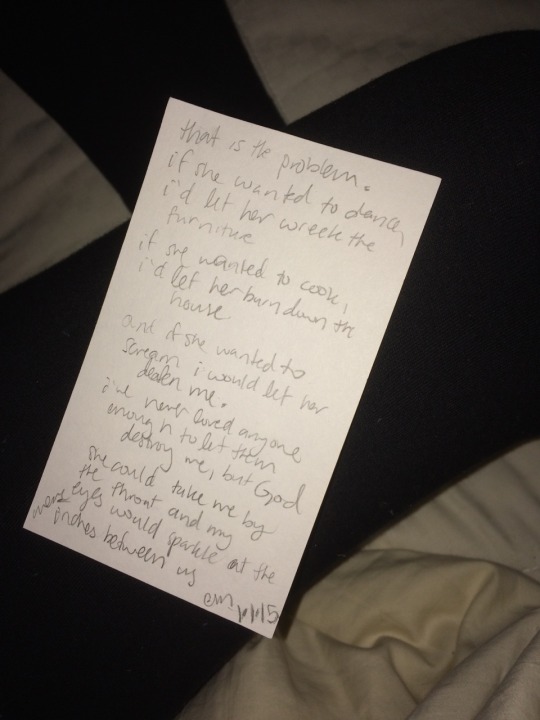 that is the problem.
if she wanted to dance,
i'd let her wreck the
furniture
if she wanted to cook,
i'd let her burn down the
house
and if she wanted to
scream i would let her
deafen me.
i've never loved anyone
enough to let them
destroy me, but God
she could take me by
the throat and my
eyes would sparkle at the
mere inches between us
1/1/15